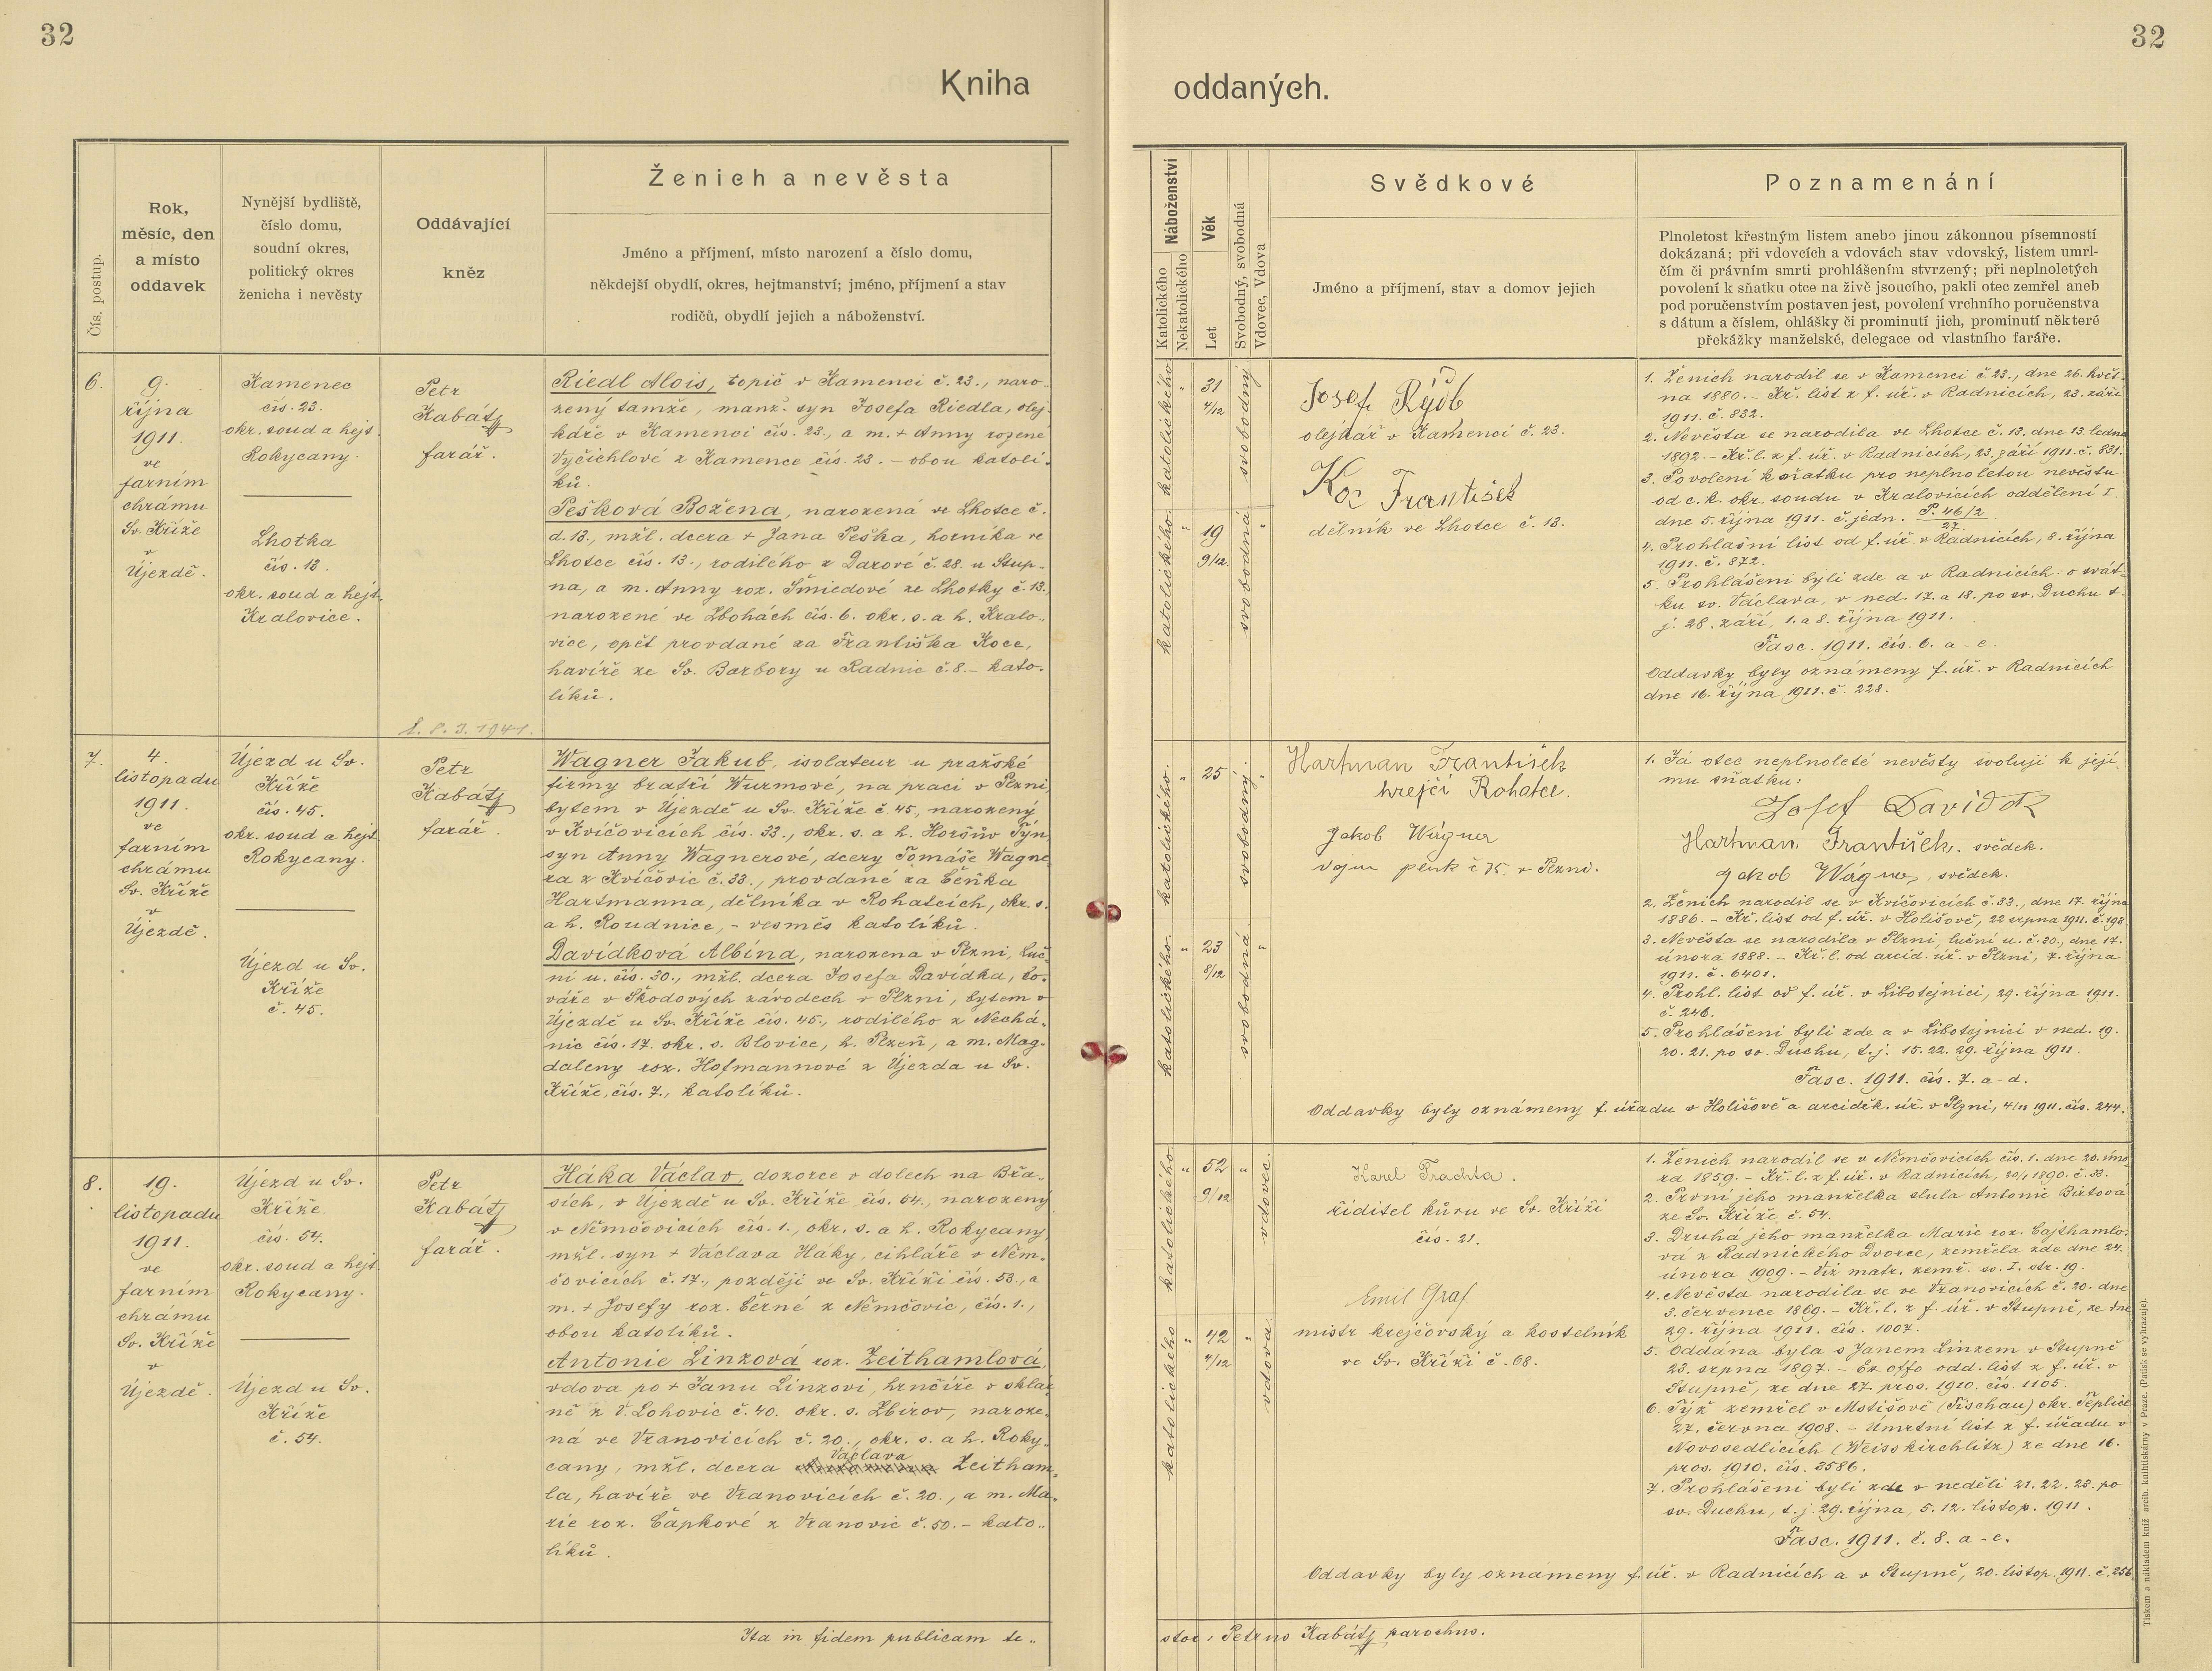 32
32
Kniha
oddaných.
Čís. postup.
Rok,
měsíc, den
a místo
oddavek
Nynější bydliště,
číslo domu,
soudní okres,
politický okres
ženicha i nevěsty
Oddávající
kněz
Ženich a nevěsta
Jméno a příjmení, místo narození a číslo domu,
někdejší obydlí, okres, hejtmanství; jméno, příjmení a stav
rodičů, obydlí jejich a náboženství.
Náboženství
Katolického
Nekatolického
Věk
Let
Svobodný, svobodná
Vdovec, Vdova
Svědkové
Jméno a příjmení, stav a domov jejich
Poznamenání
Plnoletost křestným listem anebo jinou zákonnou písemností
dokázaná; při vdovcích a vdovách stav vdovský, listem umrl-
čím či právním smrti prohlášením stvrzený; při neplnoletých
povolení k sňatku otce na živě jsoucího, pakli otec zemřel aneb
pod poručenstvím postaven jest, povolení vrchního poručenstva
s dátum a číslem, ohlášky či prominutí jich, prominutí některé
překážky manželské, delegace od vlastního faráře.
6.
9.
října
1911.
ve
farním
chrámu
Sv. Kříže
v
Újezdě.
Kamenec
čís. 23.
okr. soud a hejt.
Rokycany.
Lhotka
čís. 13.
okr. soud a hejt.
Kralovice.
Petr
Kabátj
farář.
Riedl Alois, topič v Kamenci č. 23., naro-
zený tamže, manž. syn Josefa Riedla, olej-
káře v Kamenci čís. 23., a m. + Anny rozené
Vyčichlové z Kamence čís. 23. – obou katolí-
ků.
Pešková Božena, narozená ve Lhotce č.
d. 13., mžl. dcera + Jana Peška, horníka ve
Lhotce čís. 13., rodilého z Darové č. 28. u Stup-
na, a m. Anny roz. Šmiedové ze Lhotky č. 13.,
narozené ve Zbohách čís. 6. okr. s. a h. Kralo-
vice, opět provdané za Františka Koce,
havíře ze Sv. Barbory u Radnic č. 8. – kato-
líků.
katolického
31
4/12
svobodný
katolického
19
9/12.
svobodná
Josef Rýdb
olejkář v Kamenci č. 23.
Koc František
dělník ve Lhotce č. 13.
1. Ženich narodil se v Kamenci č. 23., dne 26. květ-
na 1880. – Kř. list z f. úř. v Radnicích, 23. září
1911. č. 832.
2. Nevěsta se narodila ve Lhotce č. 13. dne 13. ledna
1892. – Kř. l. z f. úř. v Radnicích, 23. září 1911. č. 831.
3. Povolení k sňatku pro neplnoletou nevěstu
od c. k. okr. soudu v Kralovicích oddělení I.
dne 5. října 1911. č. jedn. P. 46/2
27.
4. Prohlašní list od f. úř. v Radnicích, 8. října
1911. č. 872.
5. Prohlášeni byli zde a v Radnicích: o svát-
ku sv. Václava, v ned. 17. a 18. po sv. Duchu t.
j. 28. září, 1. a 8. října 1911.
Fasc. 1911. čís. 6. a - e.
Oddavky byly oznámeny f. úř. v Radnicích
dne 16. října 1911. č. 228.
7.
4.
listopadu
1911.
ve
farním
chrámu
Sv. Kříže
v
Újezdě.
Újezd u Sv.
Kříže
čís. 45.
okr. soud a hejt.
Rokycany.
Újezd u Sv.
Kříže
č. 45.
Petr
Kabátj
farář.
Wagner Jakub, isolateur u pražské
firmy bratří Wurmové, na praci v Plzni,
bytem v Újezdě u Sv. Kříže č. 45., narozený
v Kvíčovicích čís. 33., okr. s. a h. Horšův Týn,
syn Anny Wagnerové, dcery Tomáše Wagne-
ra z Kvíčovic č. 33., provdané za Čeňka
Hartmanna, dělníka v Rohatcích, okr. s.
a h. Roudnice, – vesměs katolíků.
Davídková Albína, narozena v Plzni, Luč-
ní u. čís. 30., mžl. dcera Josefa Davídka, to-
váře v Škodových závodech v Plzni, bytem v
Újezdě u Sv. Kříže čís. 45., rodilého z Nechá-
nic čís. 17. okr. s. Blovice, h. Plzeň, a m. Mag-
daleny roz. Hofmannové z Újezda u Sv.
Kříže, čís. 7., katolíků.
katolického.
25
svobodný.
katolického.
23
8/12
svobodná.
Hartman František
krejčí Rohatce.
Jakob Wágner
vojín pluk č 35. v Plzni.
1. Já otec neplnoleté nevěsty svoluji k její-
mu sňatku:
Josef Davídek
Hartman František. svědek.
Jakob Wágner, svědek.
2. Ženich narodil se v Kvíčovicích č. 33., dne 17. října
1886. – Kř. list od f. úř. v Holišově, 22 srpna 1911. č. 198.
3. Nevěsta se narodila v Plzni, luční u. č. 30., dne 17.
února 1888. – Kř. l. od arcid. úř. v Plzni, 7. října
1911. č. 6401.
4. Prohl. list od f. úř. v Libotejnici, 29. října 1911.
č. 246.
5. Prohlášeni byli zde a v Libotejnici v ned. 19.
20. 21. po sv. Duchu, t. j. 15. 22. 29. října 1911.
Fasc. 1911. čís. 7. a - d.
Oddavky byly oznámeny f. úřadu v Holišově a arciděk. úř. v Plzni, 4/11 1911. čís. 244.
8.
19.
listopadu
1911.
ve
farním
chrámu
Sv. Kříže
v
Újezdě.
Újezd u Sv.
Kříže
čís. 54.
okr. soud a hejt.
Rokycany.
Újezd u Sv.
Kříže
č. 54.
Petr
Kabátj
farář.
Háka Václav, dozorce v dolech na Břa-
sích, v Újezdě u Sv. Kříže čís. 54., narozený
v Němčovicích čís. 1., okr. s. a h. Rokycany,
mžl. syn + Václava Háky, cihláře v Něm-
čovicích č. 17., později ve Sv. Kříži čís. 53., a
m. + Josefy roz. Černé z Němčovic, čís. 1.,
obou katolíků.
Antonie Linzová roz. Zeithamlová,
vdova po + Janu Linzovi, hrnčíře v sklár-
ně z V. Lohovic č. 40. okr. s. Zbirov, naroze-
ná ve Vranovicích č. 20., okr. s. a h. Roky-
Václava
cany, mžl. dcera Zeitham-
la, havíře ve Vranovicích č. 20., a m. Ma-
rie roz. Čapkové z Vranovic č. 50. – kato-
líků.
katolického
52
9/12
vdovec.
katolického
42
4/12
vdova.
Karel Trachta.
řiditel kůru ve Sv. Kříži
čís. 21.
Emil Graf
mistr krejčovský a kostelník
ve Sv. Kříži č. 68.
1. Ženich narodil se v Němčovicích čís. 1. dne 20. úno-
ra 1859. – Kř. l. z f. úř. v Radnicích, 20/1 1890. č. 33.
2. První jeho manželka slula Antonie Birtová
ze Sv. Kříže č. 54.
3. Druhá jeho manželka Marie roz. Cajthamlo-
vá z Radnického Dvorce, zemřela zde dne 24.
února 1909. – Viz matr. zemř. sv. I. str. 19.
4. Nevěsta narodila se ve Vranovicích č. 20. dne
3. července 1869. – Kř. l. z f. úř. v Stupně, ze dne
29. října 1911. čís. 1007.
5. Oddána byla s Janem Linzem v Stupně
23. srpna 1897. – Ex offo odd. list z f. úř. v
Stupně, ze dne 27. pros. 1910. čís. 1105.
6. Týž zemřel v Mstišově (Tischau) okr. Teplice
27. června 1908. – Úmrtní list z f. úřadu v
Novosedlicích (Weisskirchlitz) ze dne 16.
pros. 1910. čís. 3586.
7. Prohlášeni byli zde v neděli 21. 22. 23. po
sv. Duchu, t. j. 29. října, 5. 12. listop. 1911.
Fasc. 1911. č. 8. a - e.
Oddavky byly oznámeny f. úř. v Radnicích a v Stupně, 20. listop. 1911. č. 256.
Ita in fidem publicam te-
stor: Petrus Kabátj parochus.
Tiskem a nákladem kníž. arcib. knihtiskárny v Praze. (Patisk se vyhrazuje).